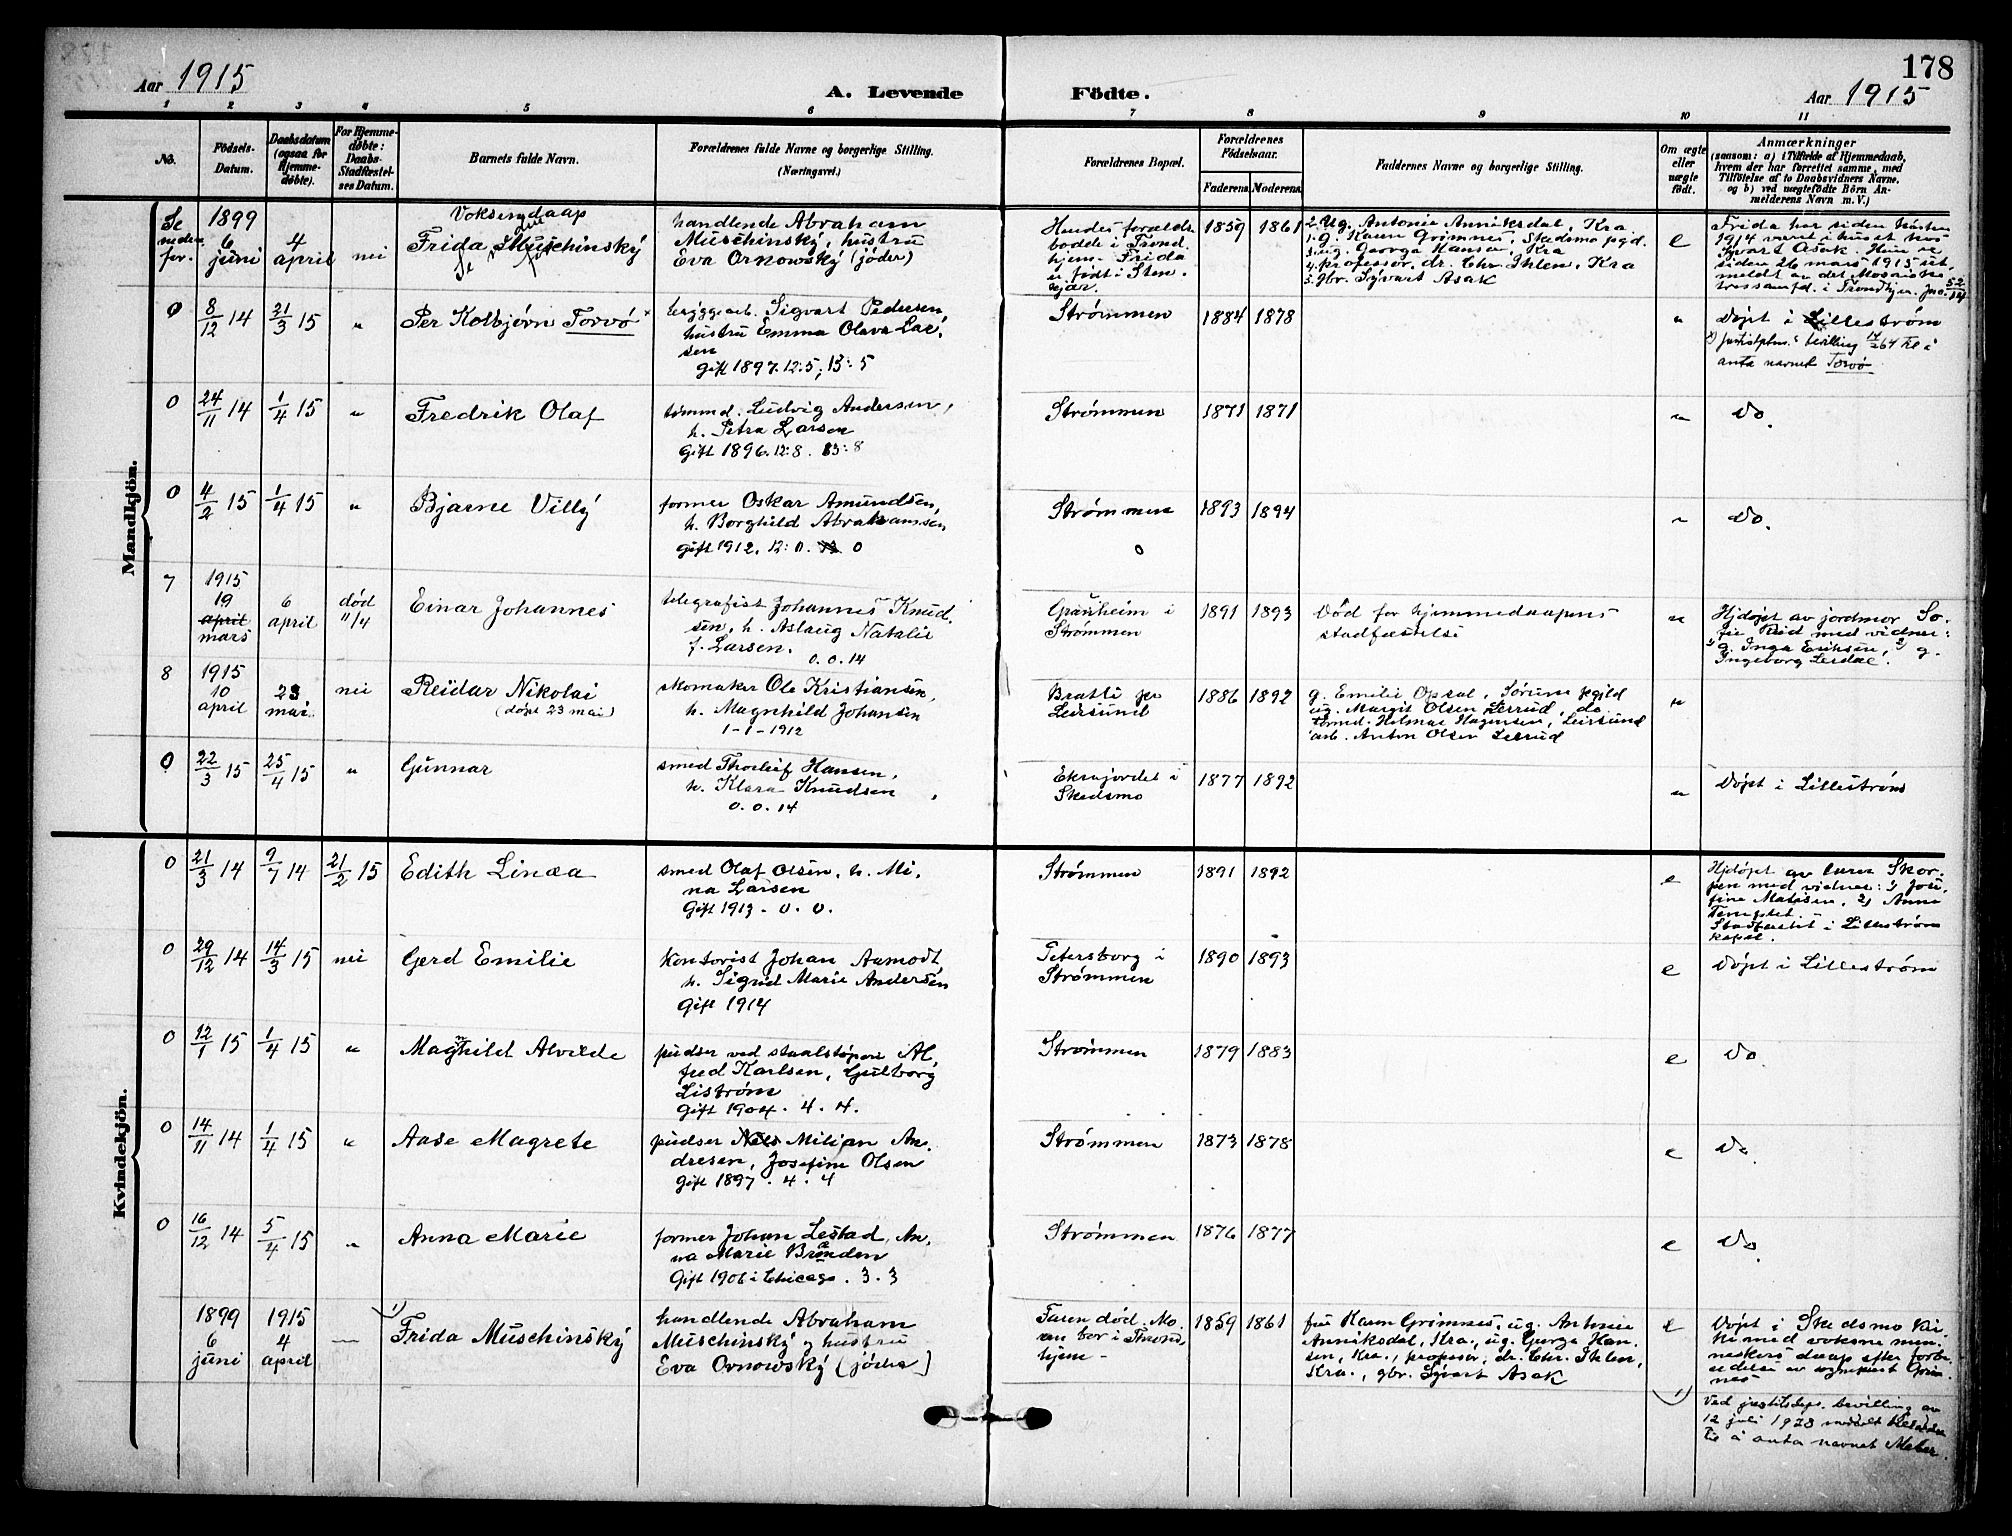 178
Aar 1915
A. Levende
Födte.
Aar 1915
1 2 3 4 5 6 7 8 9 10 11
No.
Födsels-
Datum.
Daabsdatum
(ogsaa for
Hjemme-
døbte).
For Hjemme-
døbte:
Daabs-
Stadfæstel-
ses Datum.
Barnets fulde Navn.
Forældrenes fulde Navne og borgerlige Stilling.
(Næringsvei.)
Forældrenes Bopæl.
Forældrenes
Födselsaar.
Faderens. Moderens.
Faddernes Navne og borgerlige Stilling.
Om ægte
eller
uægte
født.
Anmærkninger
(saasom: a) i Tilfælde af Hjemmedaab,
hvem der har forrettet samme, med
Tilföielse af to Daabsvidners Navne,
og b) ved uægtefödte Börn An-
melderens Navn m. V.)
Mandkjön.
Se
neden
for.
1899
6
juni
4
april
nei
Voksendaap
Frida Muschinský
Se nedenfor
handlende Abraham
Muschinský, hustru
Eva Ornowský (jøder)
Hendes foreldre
bodde i Trond-
hjem. Frida
er født i Sten-
kjær.
1859 1861
2. Ug. Antonie Anniksdal, Kra.
1. g. Karen Grimnes, Skedsmo pgd.
3. ug. Georga Hansen, Kra
4. professor, dr. Chr. Ihlen, Kra
5. gbr. Sývert Asak
e
Frida har siden høsten
1914 været i huset hos
Sývert Asak. Hun er
siden 26 mars 1915 ut-
meldt av det Mosaiske
trossamfd. i Trondhjem. Jno. 52/14
0
8/12 14
21/3 15
"
Per Kolbjørn Torvø x
byggearb. Sigvart Pedersen,
hustru Emma Olava Lar-
sen
Gift 1897. 12:5; 13:5
Strømmen
1884 1878
"
Døpt i Lillestrøm
x) Justisdptms. bevilling 17/2 64 til å
anta navnet Torvø
0
24/11 14
1/4 15
"
Fredrik Olaf
tømmd. Ludvig Andersen,
h. Petra Larsen
Gift 1896. 12:8. 13:8
Strømmen
1871 1871
"
Do.
0
4/2 15
1/4 15
"
Bjarne Villý
former Oskar Amundsen,
h. Borghild Abrahamsen,
gift 1912. 12:0. 0
Strømmen
0
1893 1894
"
Do.
7
1915
19
april
mars
6
april
død
11/4
Einar Johannes
telegrafist Johannes Knud-
sen, h. Aslaug Natalie
f. Larsen.
0. 0. 14
Granheim i
Strømmen
1891 1893
Død før hjemmedaapens
stadfæstelse
"
Hjdøpt av jordmor So-
fie Rud med vidner:
1) g. Inga Eriksen, 2) g.
Ingeborg Lerdal.
8
1915
10
april
23
mai
nei
Reidar Nikolai
(døpt 23 mai)
skomaker Ole Kristiansen,
h. Magnhild Johansen
1-1-1912
Bratli pr
Leirsund
1886 1892
g. Emilie Opsal, Sørum pgjld
ug. Margit Olsen Lerrud, do.
tømd. Helmar Hagensen, Leirsund
arb. Anton Olsen Lerrud
"
0
22/3 15
25/4 15
"
Gunnar
smed Thorleif Hansen,
h. Klara Knudsen,
0. 0. 14
Ekrajordet i
Skedsmo
1877 1892
"
Døpt i Lillestrøm
Kvindekjön.
0
21/3 14
9/7 14
21/2 15
Edith Linæa
smed Olaf Olsen, h. Mi-
na Larsen
Gift 1913. 0. 0.
Strømmen
1891 1892
e
Hjdøpt av lærer Skor-
pen med vidner: 1) Jose-
fine Madsen, 2) Anna
Stadfæstet i Lillestrøm
kapel.
0
29/12 14
14/3 15
nei
Gerd Emilie
Kontorist Johan Aamodt
h. Sigrid Marie Andersen
Gift 1914
Petersborg i
Strømmen
1890 1893
e
Døpt i Lillestrøm
0
12/1 15
1/4 15
"
Magnhild Alvilde
pudser ved staalstøperi Al-
fred Karlsen, Gulborg
Liström
Gift 1904. 4. 4.
Strømmen
1879 1883
e
Do
0
14/11 14
1/4 15
"
Aase Magrete
pudser Nils Milian An-
dresen, Josefine Olsen
Gift 1897. 4. 4
Strømmen
1873 1878
e
Do.
0
16/12 14
5/4 15
"
Anna Marie
former Johan Lestad, An-
na Marie Braaden
Gift 1906 i Chicago. 3. 3
Strømmen
1876 1877
e
Do
1899
6
juni
1915
4
april
—
1)
Frida Muschinský
handlende Abraham
Muschinský og hustru
Eva Ornowský (jøder)
Faren død. Mo-
ren bor i Trond-
hjem -
1859 1861
fru Karen Grimnes, ug. Antonie
Anniksdal, Kra., ug. Georga Han-
sen, Kra., professor, dr. Chr. Ihlen,
Kra., gbr. Sývert Asak
e
Døpt i Skedsmo kir-
ke med voksne men-
neskers daap efter forbe-
redelse av sogneprest Grim-
nes
1)
Ved justitsdept. bevilling av
12 juli 1928
til å anta navnet